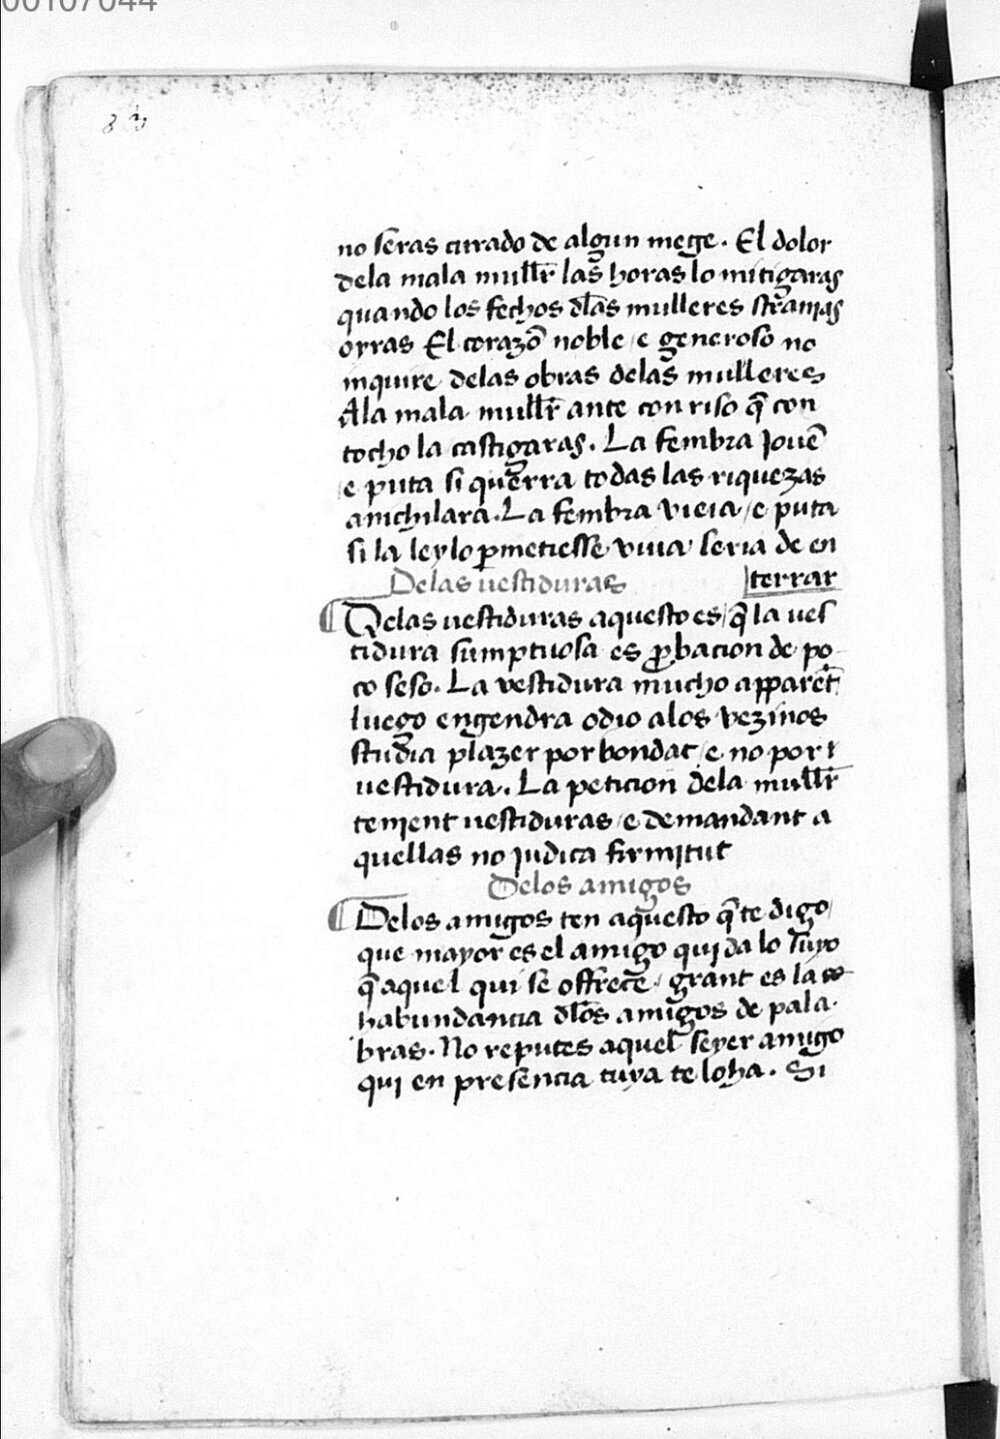 00107044
no seras curado de algun mege. El dolor
dela mala mullr̄ las horas lo mitigaras
quando los fechos dl̄as mulleres strānias
oyras El corazō noble e generoso no
inquire delas obras delas mulleres
Ala mala mullr̄ ante con riso q̄ con
tocho la castigaras. La fembra Jouē
e puta si querra todas las riquezas
anichilara. La fembra vieia e puta
si la ley lo ꝑmetiesse viua seria de en
terrar
Delas vestiduras
Delas vestiduras aquesto es q̄ la ves
tidura sumptuosa es ꝓbacion de po
co seso. La vestidura mucho apparēt
luego engendra odio alos vezinos
studia plazer por bondat e no por
vestidura. La peticion dela mullr̄
tenient vestiduras e demandant a
quellas no judica firmitut
Delos amigos
Delos amigos ten aquesto q̄ te digo
que mayor es el amigo qui da lo suyo
q̄ aquel qui se offrece grant es la
habundancia dl̄os amigos de pala
bras. No reputes aquel seyer amigo
qui en presencia tuya te loha. Si